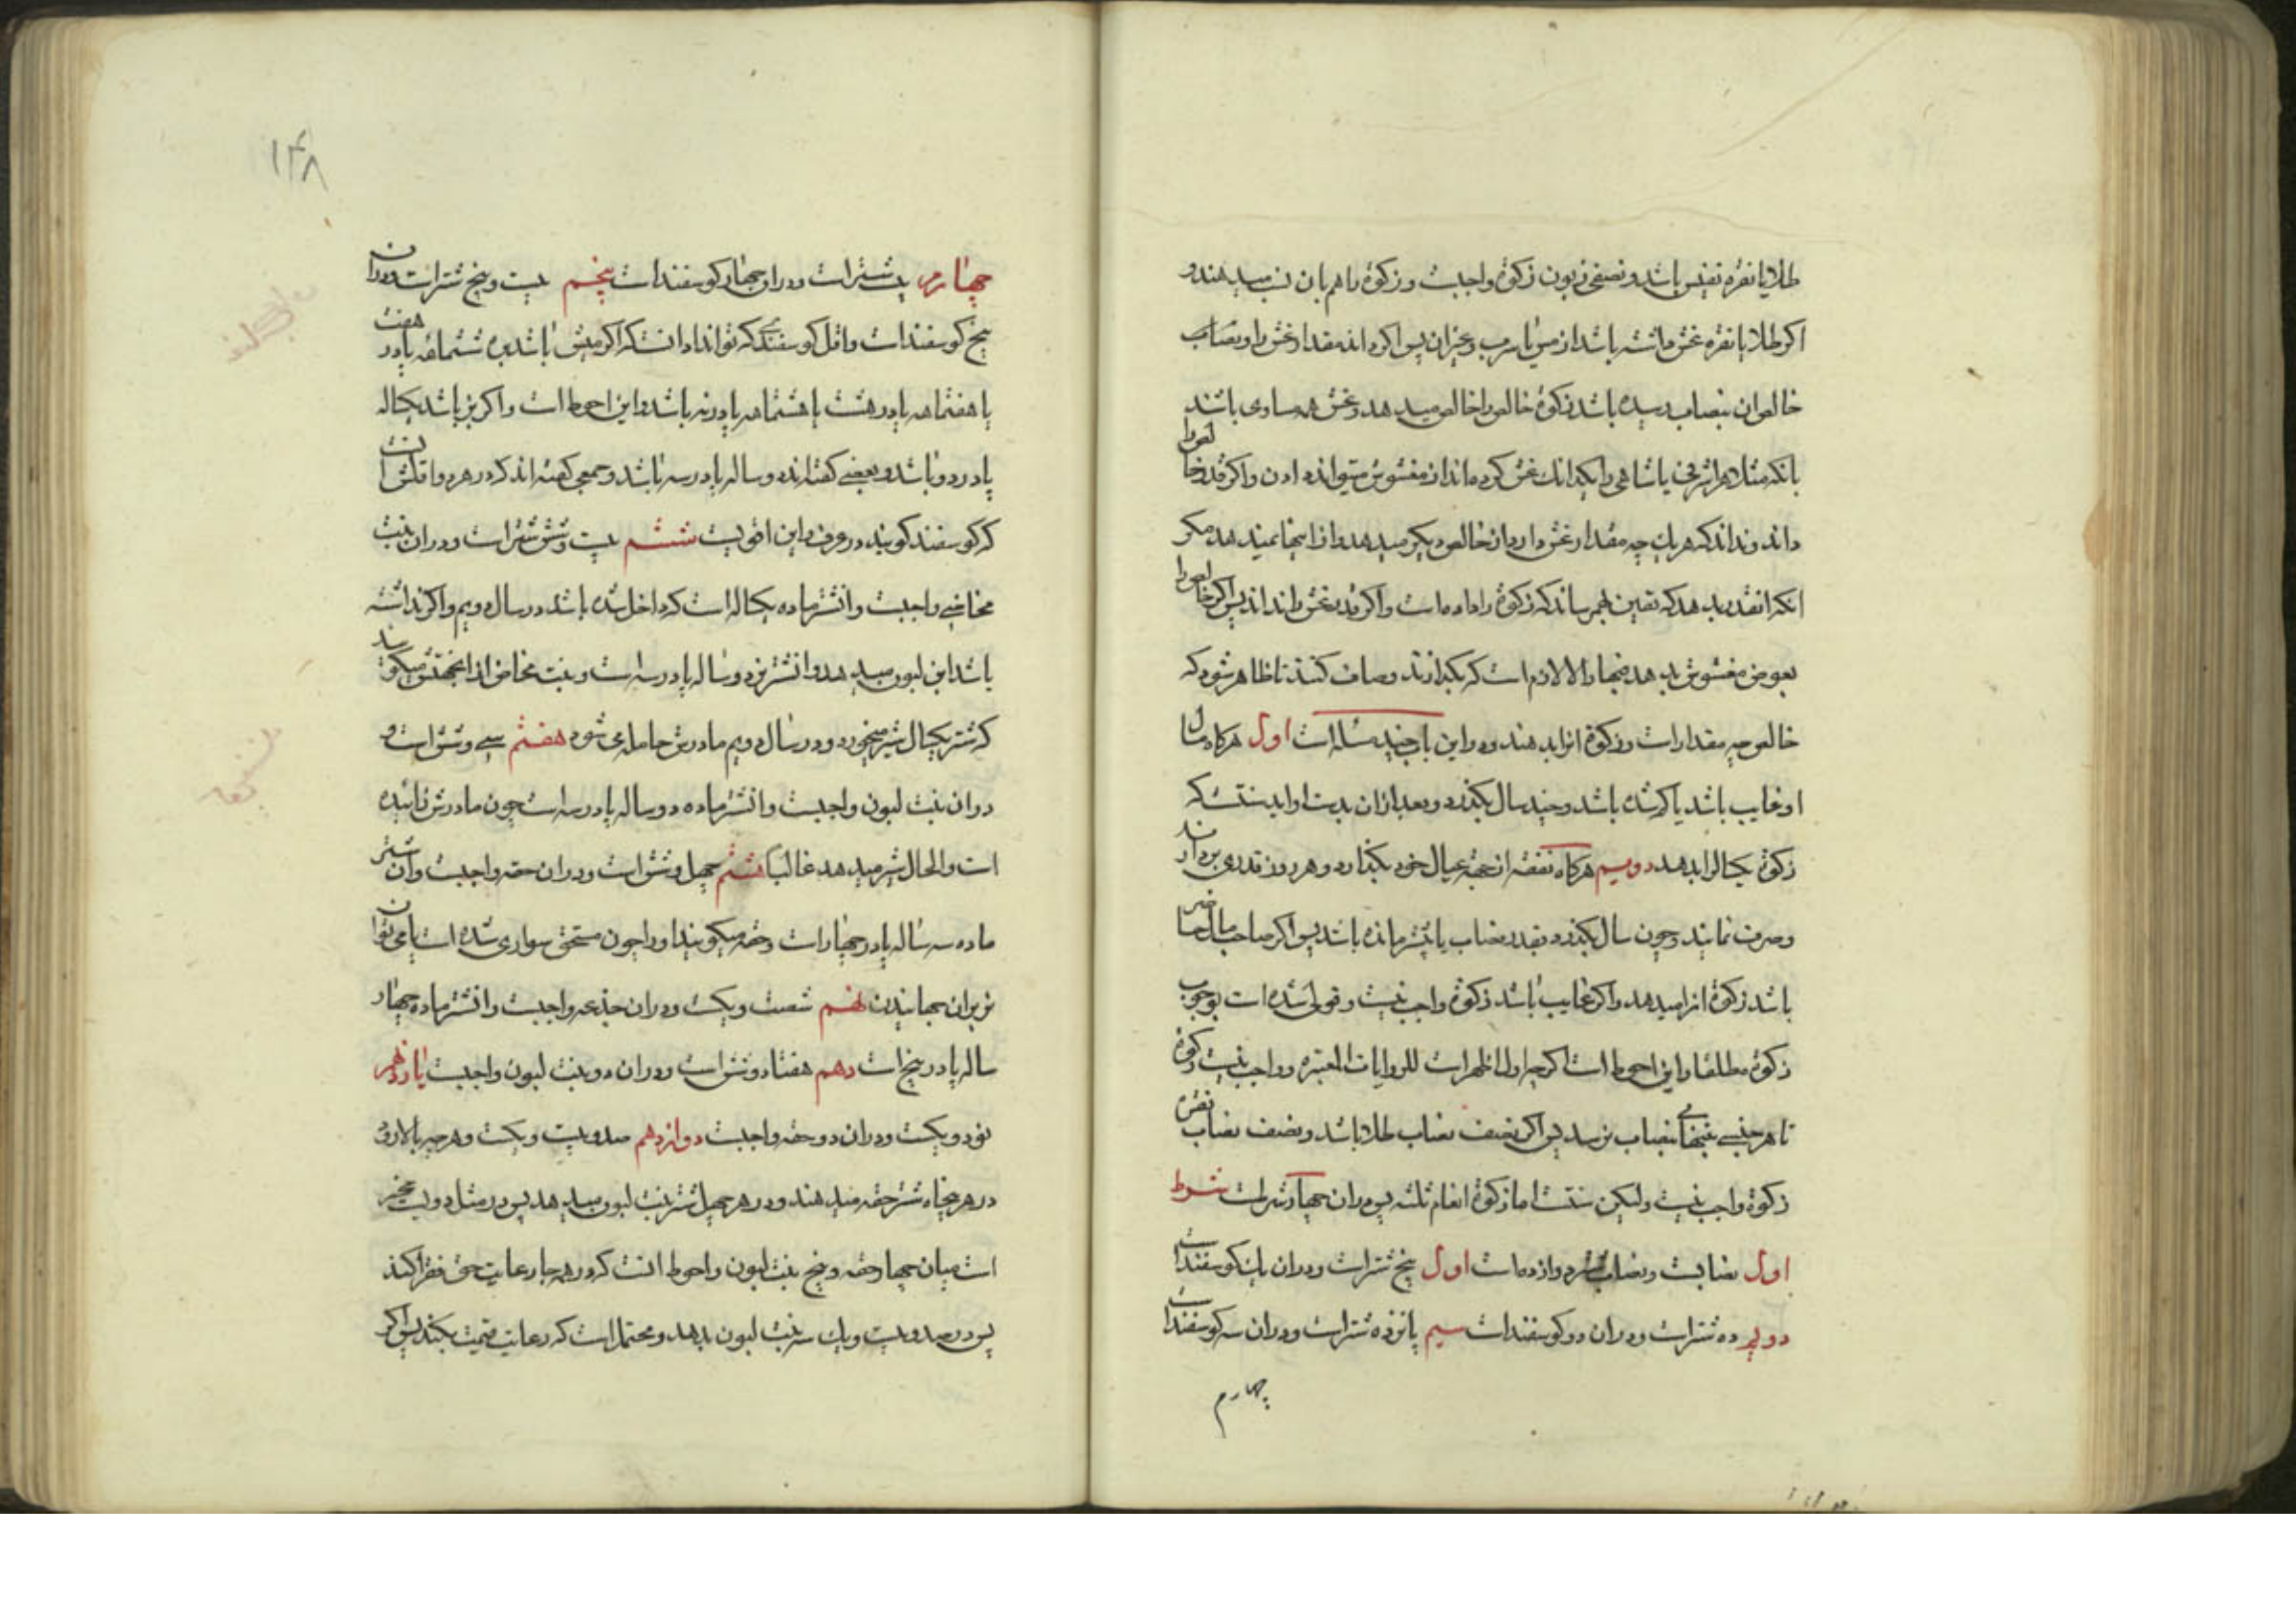 طلا یا نقره نفیس باشد و نصفی زبون زکوة واجبست و زکوة را هم بان نسب میدهند و
اکر طلا یا نقره غش داشته باشد از مس یا سرب و غیر ان پس اکر داند مقدار غش را و نصاب
خالص ان بنصاب رسیده باشد زکوة خالص را خالص میدهد و غش همه مساوی باشند
بانکه مثلا هر اشرفی یا شاهی را یکدانك غش کرده اند از مغشوش میتواند دادن و اکر قدر خالص را
داند و نداند که هر یك چه مقدار غش دارد از خالص دیکر میدهد و از اینجا نمیدهد مکر
انکه انقدر بدهد که یقین بهم رساند که زکوة را داده است و اکر قدر غش را نداند پس اکر خالص را
بعوض مغشوش بدهد فبها و الا لازمست که بکدازند و صاف کنند تا ظاهر شود که
خالص چه مقدار است و زکوة انرا بدهند و در این باب چند مسئله است اول هرکاه مال
او غایب باشد یا کم شده باشد و چند سال بکذرد و بعد از ان بدست او اید سنتست که
زکوة یکساله را بدهد دویم هرکاه نفقه از جهة عیال خود بکذارد و هر روز قدری بردارند
و صرف نمایند و چون سال بکذرد بقدر نصاب یا بیشتر مانده باشد پس اکر صاحب مال حاضر
باشد زکوة انرا میدهد و اکر غایب باشد زکوة واجب نیست و قولی شده است بوجوب
زکوة مطلقا و این احوط است اکرچه اول اظهر است للروایات المعتبره و واجب نیست زکوة
تا هر جنسی بنصاب نرسد پس اکر نصف نصاب طلا باشد و نصف نصاب نقره
زکوة واجب نیست ولیکن سنتست اما زکوة انعام ثلثه پس در ان چهار شرطست شرط
اول نصابست و نصاب شتر دوازده است اول پنج شتر است و در ان یك کوسفند است
دویم ده شتر است و در ان دو کوسفند است سیم پانزده شتر است و در ان سه کوسفند است
چهارم
۱۴۸
چهارم بیست شتر است و در ان چهار کوسفند است پنجم بیست و پنج شتر است و در ان
پنج کوسفند است و اقل کوسفندی که تواند داد انست که اکر میش باشد بره ششماهه یا در هفت
یا هفتماهه یا در هشت یا هشتماهه یا در نه باشد و این احوط است و اکر بز باشد یکساله
یا در دو باشد و بعضی کفته اند دو ساله یا در سه باشد و جمعی کفته اند که در هر دو اقلش انست
که کوسفند کویند در عرف و این اقویست ششم بیست و شش شتر است و در ان بنت
مخاضی واجبست و ان شتر ماده یکساله است که داخل شده باشد در سال دویم و اکر نداشته
باشد ابن لبون میدهد و ان شتر نر دو ساله یا در سه است و بنت مخاض از انجهتش میکویند
که شتر یکسال شیر میخورد و در سال دویم مادرش حامله می شود هفتم سی و شش است و
در ان بنت لبون واجبست و ان شتر ماده دو ساله یا در سه است چون مادرش زائیده
است و الحال شیر میدهد غالبا هشتم چهل و شش است و در ان حقه واجبست و ان شتر
ماده سه ساله یا در چهار است و حقه میکویند او را چون مستحق سواری شده است یا می توان
نر بر ان جهانیدن نهم شصت و یکست و در ان جذعه واجبست و ان شتر ماده چهار
ساله یا در پنج است دهم هفتاد و شش است و در ان دو بنت لبون واجبست یازدهم
نود و یکست و در ان دو حقه واجبست دوازدهم صد و بیست و یکست و هرچه بالا رود
در هر پنجاه شتر حقه میدهند و در هر چهل شتر بنت لبون میدهد پس در مثل دویست مخیر
است میان چهار حقه و پنج بنت لبون و احوط انست که در همه جا رعایت حق فقرا کند
پس در صد و بیست و یك سه بنت لبون بدهد و محتمل است که رعایت قیمت بکند پس اکر